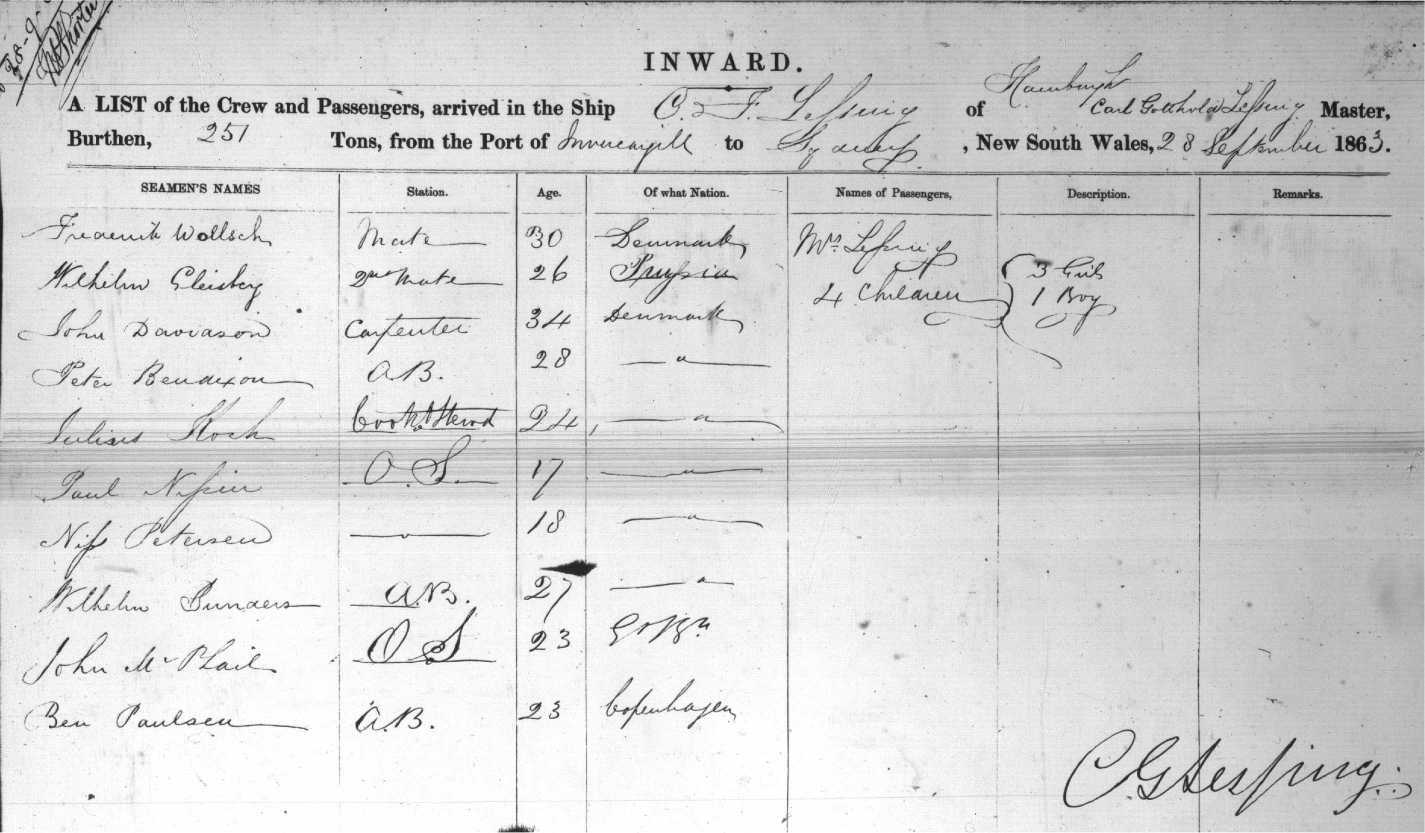 28-9
INWARD.
Hamburgh
A LIST of the Crew and Passengers, arrived in the Ship C. F. Lessing of Carl Gotthold Lessing Master,
Burthen, 251 Tons, from the Port of Invercargill to Sydney, New South Wales, 28 September 1863.
SEAMEN'S NAMES Station. Age. Of what Nation. Names of Passengers, Description. Remarks.
Frederik Wollsch Mate 30 Denmark Mrs Lessing
Wilhelm 2nd Mate 26 Prussia 4 Children 3 Girls
1 Boy
John Davidson Carpenter 34 Denmark
Peter Bendixon A.B. 28 — " —
Julius Koch Cook & Steward 24 — " —
Paul Nissen O.S. 17 — " —
Niss Petersen — " — 18 — " —
Wilhelm A.B. 27 — " —
John McPhail O S 23 Gt Bn
Ben Paulsen A.B. 23 Copenhagen
C G Lessing.